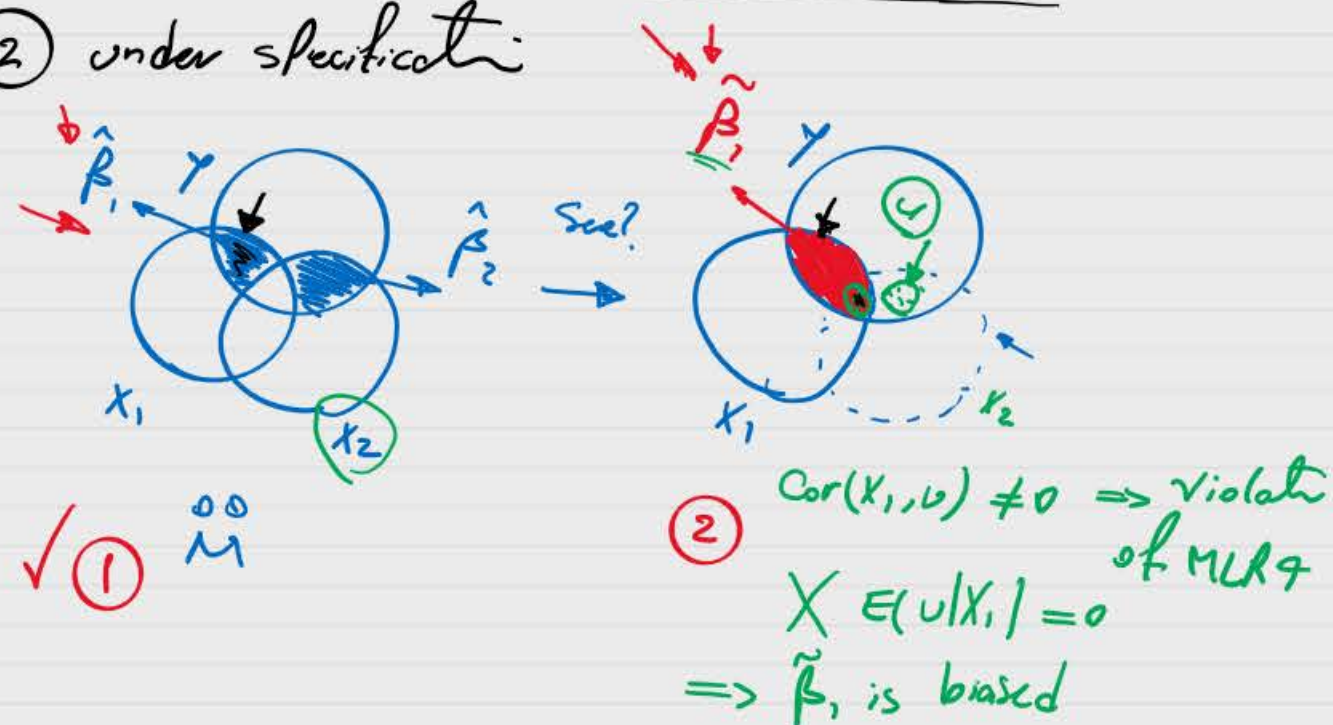 2) under specificati
β̂₁ Y β̂₂ See?
X₁ X₂
β̃₁ Y u
X₁ X₂
✓ ① M
② Cor(X₁, u) ≠ 0 => Violat
of MLR4
X E(u|X₁) = 0
=> β̃₁ is biased